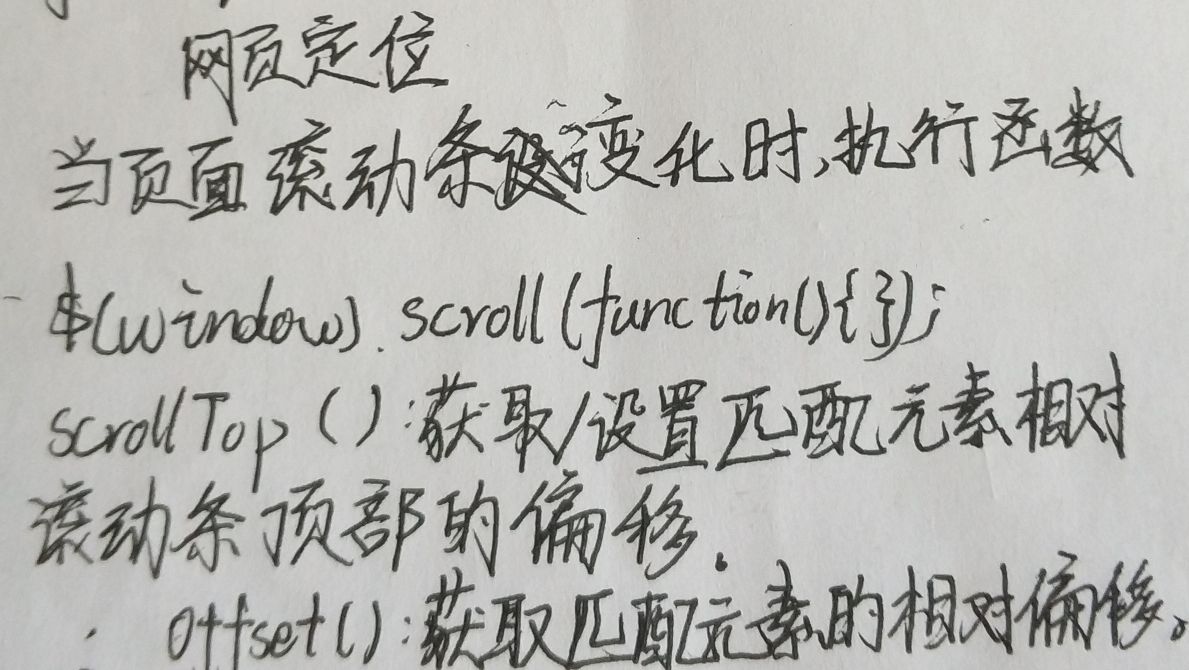 网页定位
当页面滚动条变化时,执行函数
$(window).scroll(function(){});
scrollTop():获取/设置匹配元素相对
滚动条顶部的偏移.
offset():获取匹配元素的相对偏移。